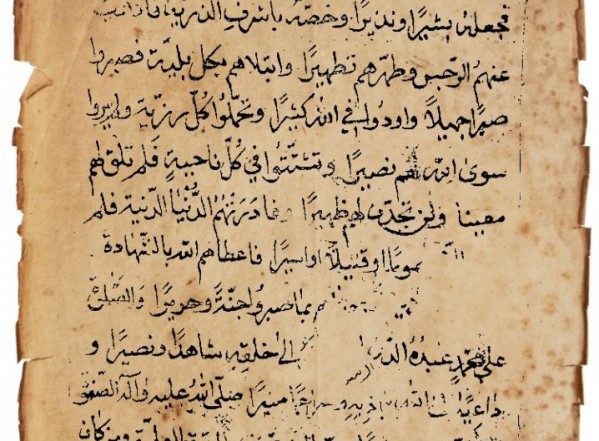 فجعله بشيرًا ونذيرًا وخصّه بأشرف الذرية فأذهب
عنهم الرجس وطهّرهم تطهيرًا وابتلاهم بكل بلية فصبروا
صبرًا جميلًا واوذوا في الله كثيرًا وتحمّلوا كلّ رزية ولم يروا
سوى الله لهم نصيرًا وتشتّتوا في كلّ ناحية فلم تلق لهم
معينا ولن تجد لهم ظهيرًا وغادرتهم الدّنيا الدّنية فلم
او قتيلًا او اسيرًا فاعطاهم الله بالشّهادة
بما صبروا جنّةً وحريرًا والصّلوة
على محمّد عبده الى خلقه شاهدًا ونصيرًا و
داعيًا الى الله باذنه وسراجًا منيرًا صلّى الله عليه وآله